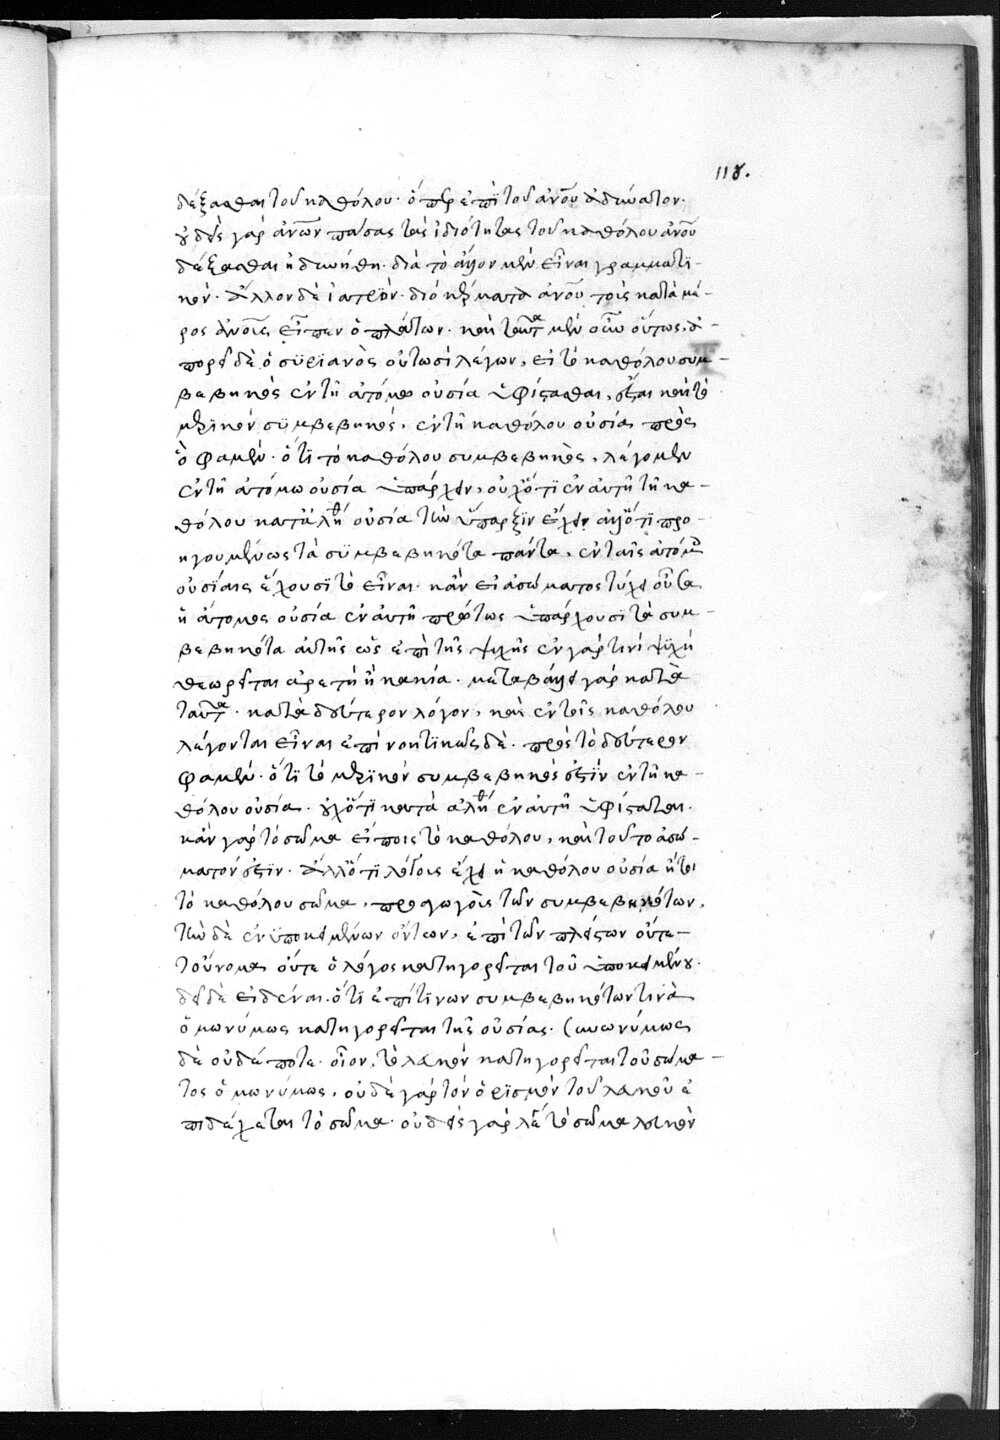 118.
δέξασθαι τοῦ καθόλου· ὅπερ ἐπὶ τοῦ ἀνου ἀδύνατον·
οὐδεὶς γὰρ ἀνων πάσας τὰς ἰδιότητας τοῦ καθόλου ἀνου
δέξασθαι ἠδυνήθη· διὰ τὸ ἄλλον μὲν εἶναι γραμματι-
κόν· ἄλλον δὲ ἰατρόν· διὸ κατὰ ἀνου τοῖς κατὰ μέ-
ρος ἀνοις εἶπεν ὁ πλάτων· καὶ ταῦτα μὲν οὕτως· ἀ-
πορεῖ δὲ ὁ συριανὸς οὑτωσὶ λέγων, εἰ τὸ καθόλου συμ-
βεβηκὸς ἐν τῇ ἀτόμῳ οὐσία ὑφίστασθαι, ἔσται καὶ τὸ
μερικὸν συμβεβηκός, ἐν τῇ καθόλου οὐσία πρὸς
ὅ φαμεν· ὅτι τὸ καθόλου συμβεβηκὸς, λέγομεν
ἐν τῇ ἀτόμω οὐσία ὑπάρχειν, οὐχ ὅτι ἐν αὐτῇ τῇ κα-
θόλου κατ' ἀλήθ οὐσία τὴν ὕπαρξιν ἔχει ἀλλ' ὅτι προ-
ηγουμένως τὰ συμβεβηκότα πάντα, ἐν ταῖς ἀτόμοις
οὐσίαις ἔχουσι τὸ εἶναι· κἂν εἰ ἀσώματος τύχῃ οὖσα
ἡ ἄτομος οὐσία ἐν αὐτῇ πρώτως ὑπάρχουσι τὰ συμ-
βεβηκότα αὐτῆς ὡς ἐπὶ τῆς ψυχῆς ἐν γάρ τινι ψυχῇ
θεωρεῖται ἀρετὴ ἢ κακία· μεταβάλλει γὰρ κατὰ
ταῦτα· κατὰ δεύτερον λόγον, καὶ ἐν τοῖς καθόλου
λέγονται εἶναι ἐπινοητικῶς δὲ· πρὸς τὸ δεύτερον
φαμεν· ὅτι τὸ μερικὸν συμβεβηκός ἐστιν ἐν τῇ κα-
θόλου οὐσία· οὐχ ὅτι κατὰ ἀλήθ ἐν αὐτῇ ὑφίσταται·
κἂν γὰρ τὸ σῶμα εἴποις τὸ καθόλου, καὶ τοῦτο ἀσώ-
ματόν ἐστιν· ἀλλ' ὅτι λόγους ἔχει ἡ καθόλου οὐσία ἤτοι
τὸ καθόλου σῶμα, προαγωγοὺς τῶν συμβεβηκότων,
τῶν δὲ ἐν ὑποκειμένων ὄντων, ἐπὶ τῶν πλείστων οὔτε-
τοὔνομα οὔτε ὁ λόγος κατηγορεῖται τοῦ ὑποκειμένου·
δεῖ δὲ εἰδέναι· ὅτι ἐπί τινων συμβεβηκότων τινὰ
ὁμωνύμως κατηγορεῖται τῆς οὐσίας· συνωνύμως
δὲ οὐδέποτε· οἷον, τὸ λευκὸν κατηγορεῖται τοῦ σώμα-
τος ὁμωνύμως, οὐδὲ γὰρ τὸν ὁρισμὸν τοῦ λευκοῦ ἐ
πιδέχεται τὸ σῶμα· οὐδεὶς γὰρ λέγει τὸ σῶμα λευκὸν